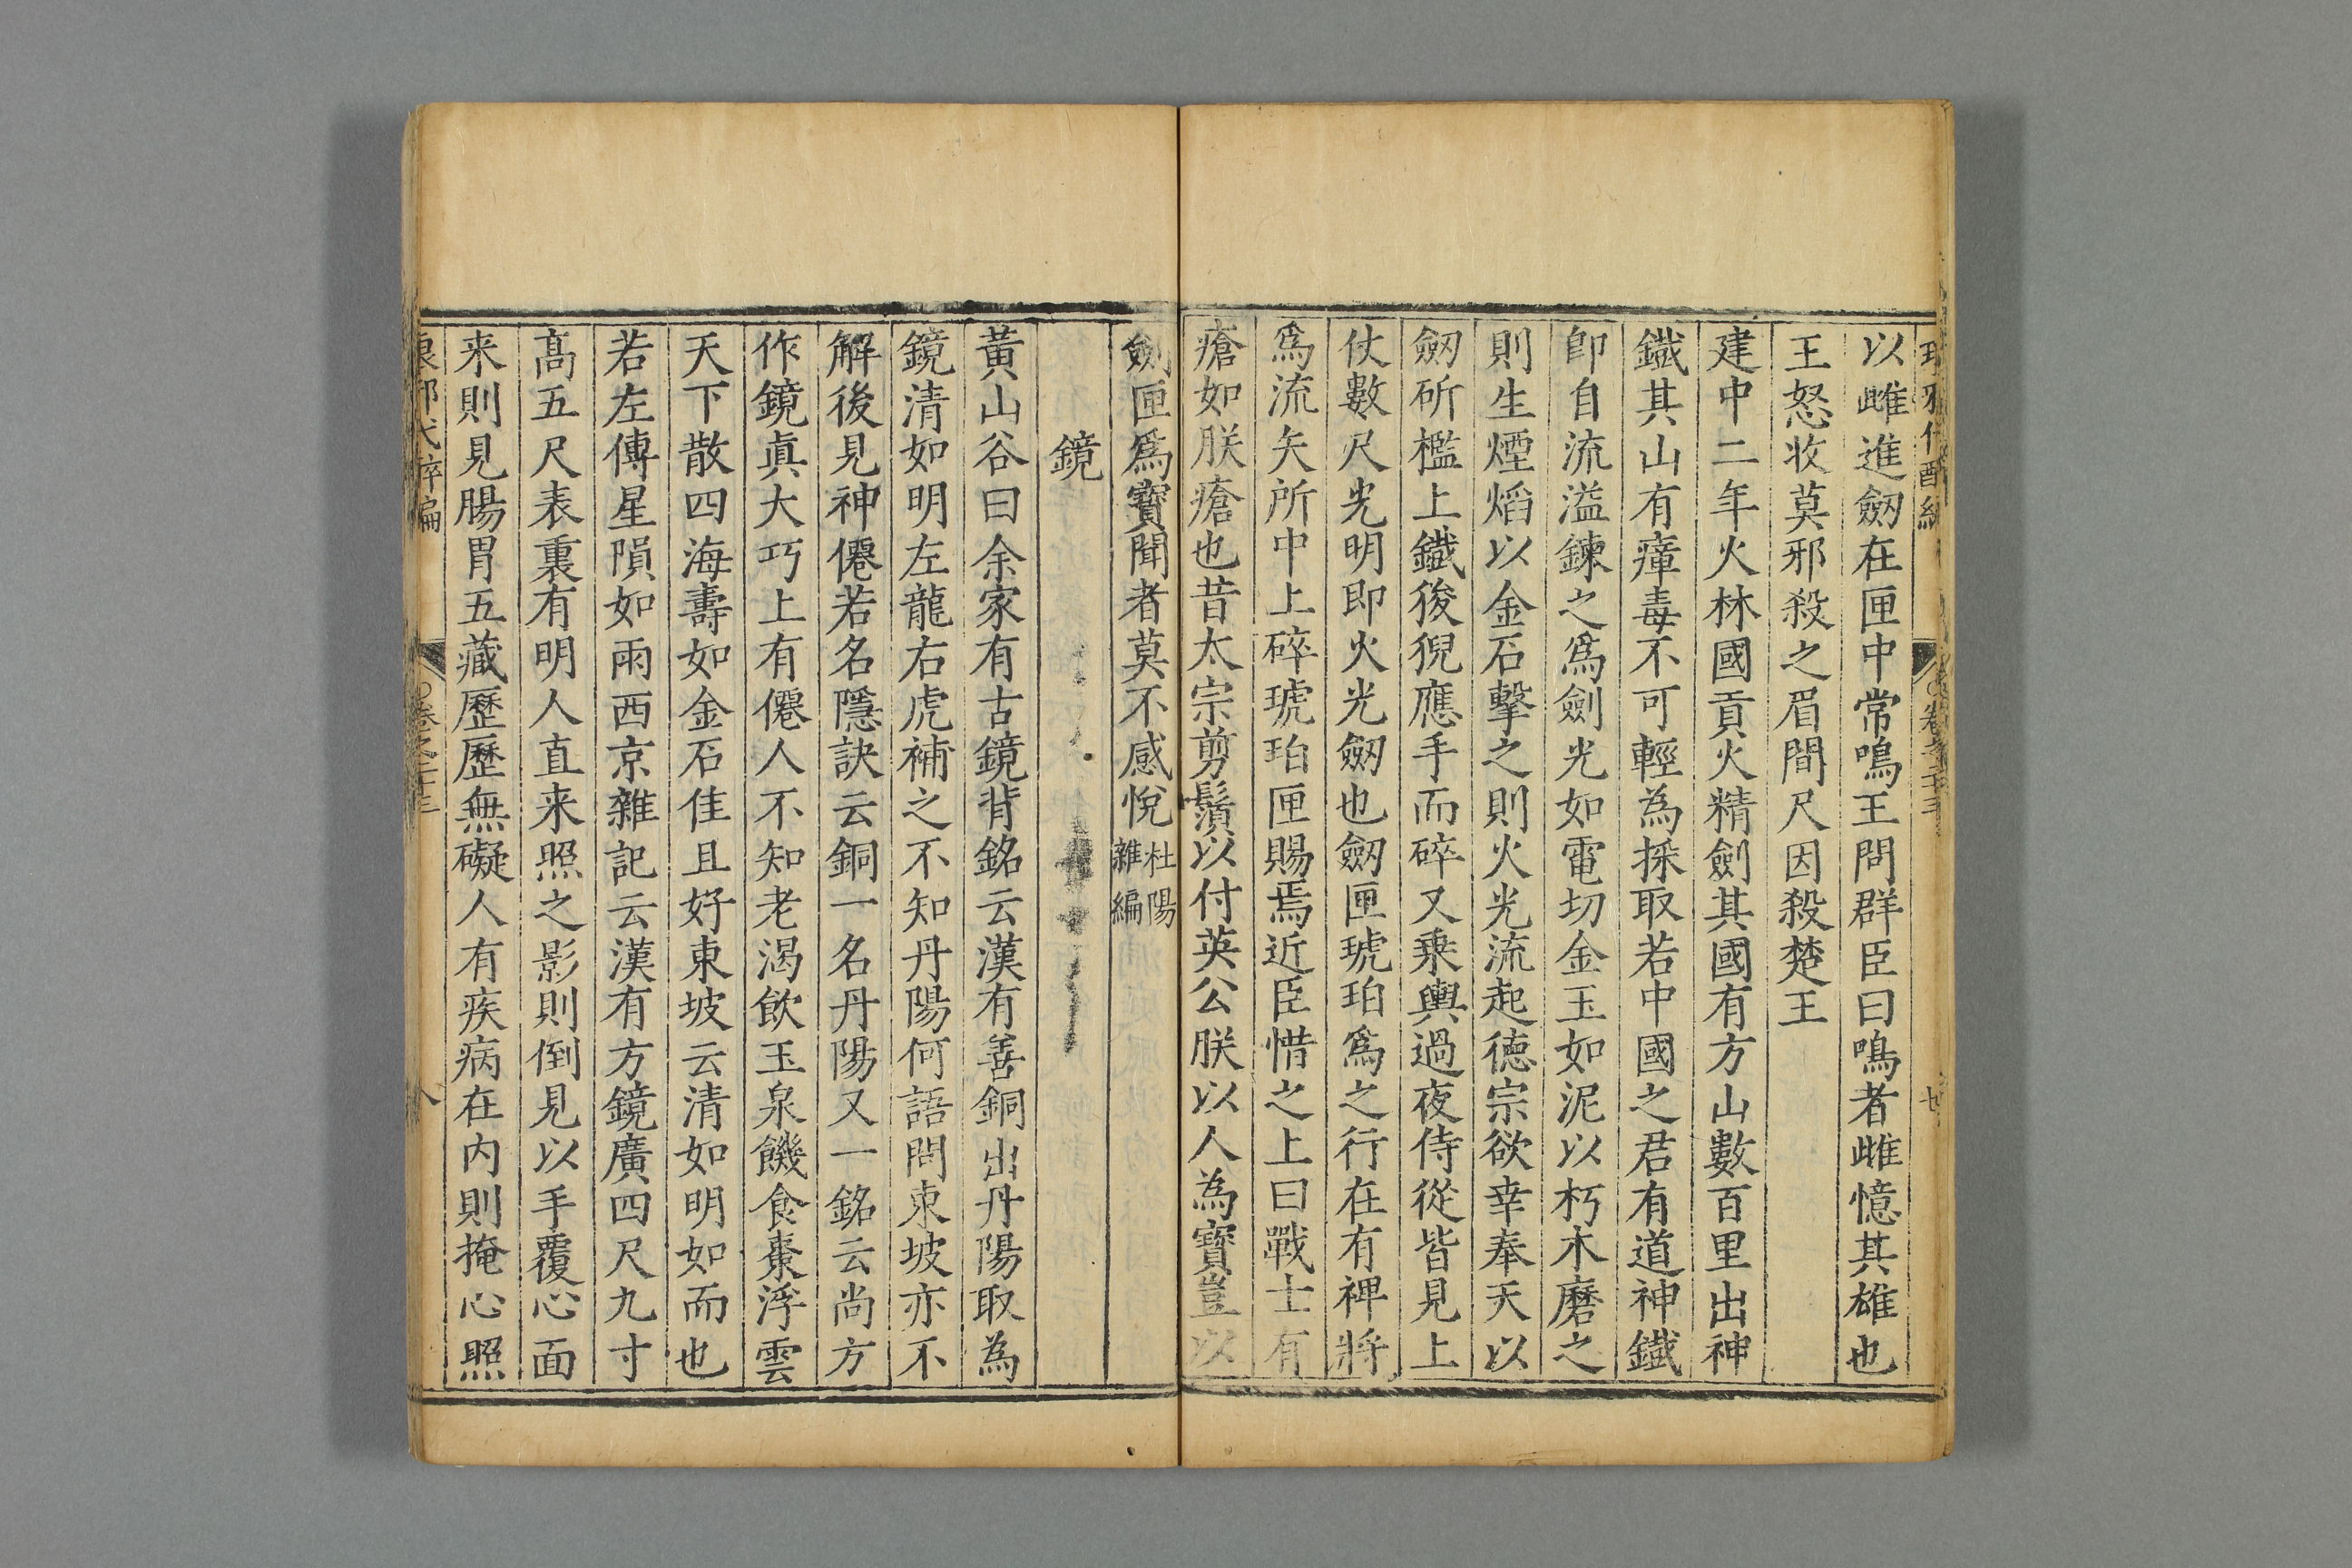 以雌進劒在匣中常鳴王問群臣曰鳴者雌憶其雄也
王怒收莫邪殺之眉間尺因殺楚王
建中二年火林國貢火精劍其國有方山數百里出神
鐵其山有瘴毒不可輕為採取若中國之君有道神鐵
卽自流溢鍊之爲劍光如電切金玉如泥以朽木磨之
則生煙焰以金石擊之則火光流起德宗欲幸奉天以
劒斫檻上鐵狻猊應手而碎又乗輿過夜侍從皆見上
仗數尺光明即火光劒也劒匣琥珀爲之行在有裨將
爲流矢所中上碎琥珀匣賜焉近臣惜之上曰戰士有
瘡如朕瘡也昔太宗剪鬚以付英公朕以人為寶豈以
劍匣爲寶聞者莫不感悅杜陽
雜編
鏡
黃山谷曰余家有古鏡背銘云漢有善銅出丹陽取為
鏡清如明左龍右虎補之不知丹陽何語問東坡亦不
解後見神僊若名隱訣云銅一名丹陽又一銘云尚方
作鏡真大巧上有僊人不知老渴飲玉泉饑食棗浮雲
天下散四海壽如金石佳且好東坡云清如明如而也
若左傳星隕如雨西京雜記云漢有方鏡廣四尺九寸
髙五尺表裏有明人直来照之影則倒見以手覆心面
来則見腸胃五藏歷歷無礙人有疾病在内則掩心照